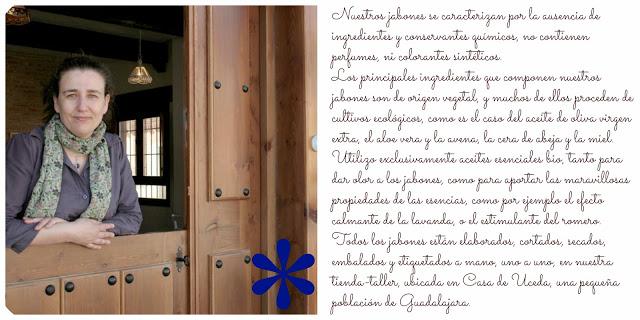 Nuestros jabones se caracterizan por la ausencia de
ingredientes y conservantes químicos, no contienen
perfumes, ni colorantes sintéticos.
Los principales ingredientes que componen nuestros
jabones son de origen vegetal, y muchos de ellos proceden de
cultivos ecológicos, como es el caso del aceite de oliva virgen
extra, el aloe vera y la avena, la cera de abeja y la miel.
Utilizo exclusivamente aceites esenciales bio, tanto para
dar olor a los jabones, como para aportar las maravillosas
propiedades de las esencias, como por ejemplo el efecto
calmante de la lavanda, o el estimulante del romero.
Todos los jabones están elaborados, cortados, secados,
embalados y etiquetados a mano, uno a uno, en nuestra
tienda-taller, ubicada en Casa de Uceda, una pequeña
población de Guadalajara.